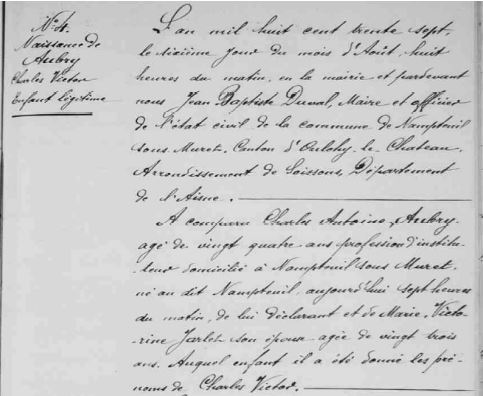 N° 4.
Naissance de
Aubry
Charles Victor
Enfant légitime
L'an mil huit cent trente sept,
le sixième jour du mois d'Août huit
heures du matin, en la mairie et pardevant
nous Jean Baptiste Duval, Maire et officier
de l'état civil de la commune de Nampteuil
sous Muret, Canton d'Oulchy-le-Chateau,
Arrondissement de Soissons, Département
de l'Aisne.
A comparu Charles Antoine Aubry
agé de vingt quatre ans profession d'institu-
teur domicilié à Nampteuil sous Muret,
né au dit Nampteuil, aujourd'hui sept heures
du matin, de lui déclarant et de Marie Victo-
rine Jarlet son épouse agée de vingt trois
ans. Auquel enfant il a été donné les pré-
noms de Charles Victor.